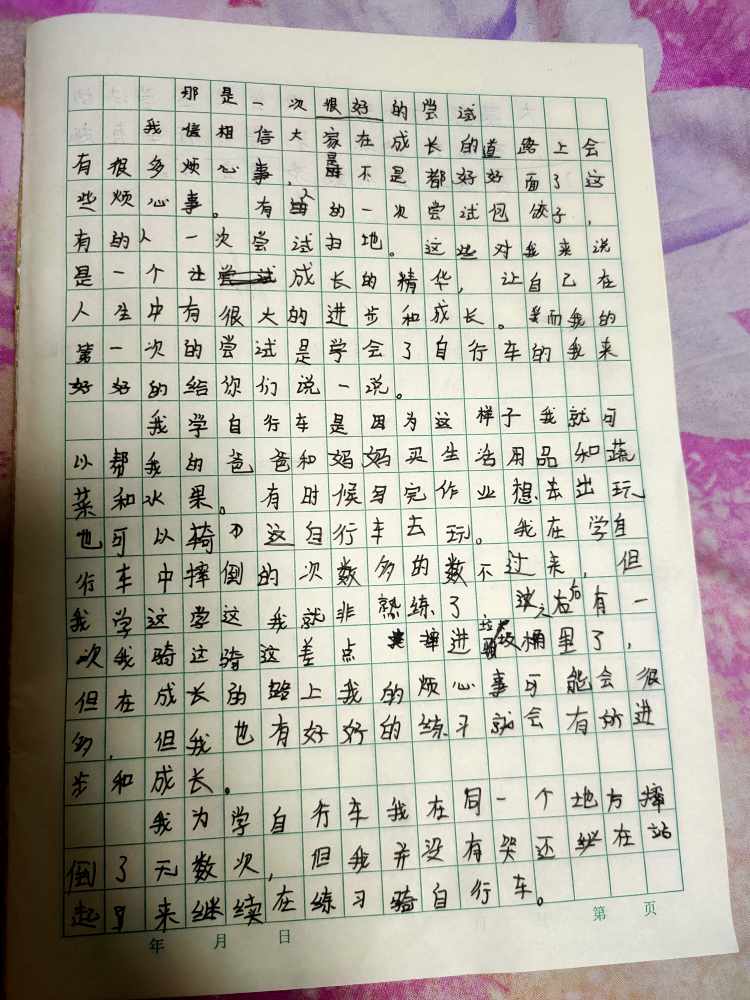 那是一次很好的尝试
我信相信大家在成长的道路上会
有很多烦心事，是不是都好好面了这
些烦心事。有的人的一次尝试包饺子，
有的人一次尝试扫地。这些对我来说
是一个成长的精华，让自己在
人生中有很大的进步和成长。而我的
第一次的尝试是学会了自行车的我来
好好的给你们说一说。
我学自行车是因为这样子我就可
以帮我的爸爸和妈妈买生活用品和蔬
菜和水果。有时候写完作业想去出玩
也可以椅这自行车去玩。我在学自
行车中摔倒的次数多的数不过来，但
我学这学这我就非熟练了之后有一
次我骑这骑这差点摔进垃圾桶里了，
但在成长的路上我的烦心事可能会很
多，但我也有好好的练习就会有好进
步和成长。
我为学自行车我在同一个地方摔
倒了无数次，但我并没有哭还继在站
起来继续在练习骑自行车。
年 月 日 第 页